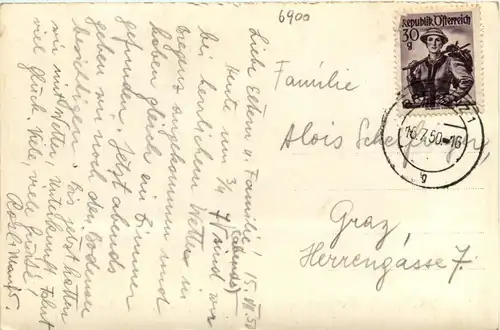 6900
Republik Österreich
30
g
16.7.50.-16
1
g
Familie
Alois
Graz,
Herrengasse 7.
Liebe Eltern u. Familie! 15.
Heute um 3/4 7 (abends) sind wir
bei herrlichem Wetter in
Bregenz angekommen und
haben gleich ein Zimmer
gefunden. Jetzt abends
gehen wir noch den Bodensee
besichtigen. Bis jetzt hatten
wir mit Wetter, Unterkunft, Fahrt
viel Glück. Viele, viele